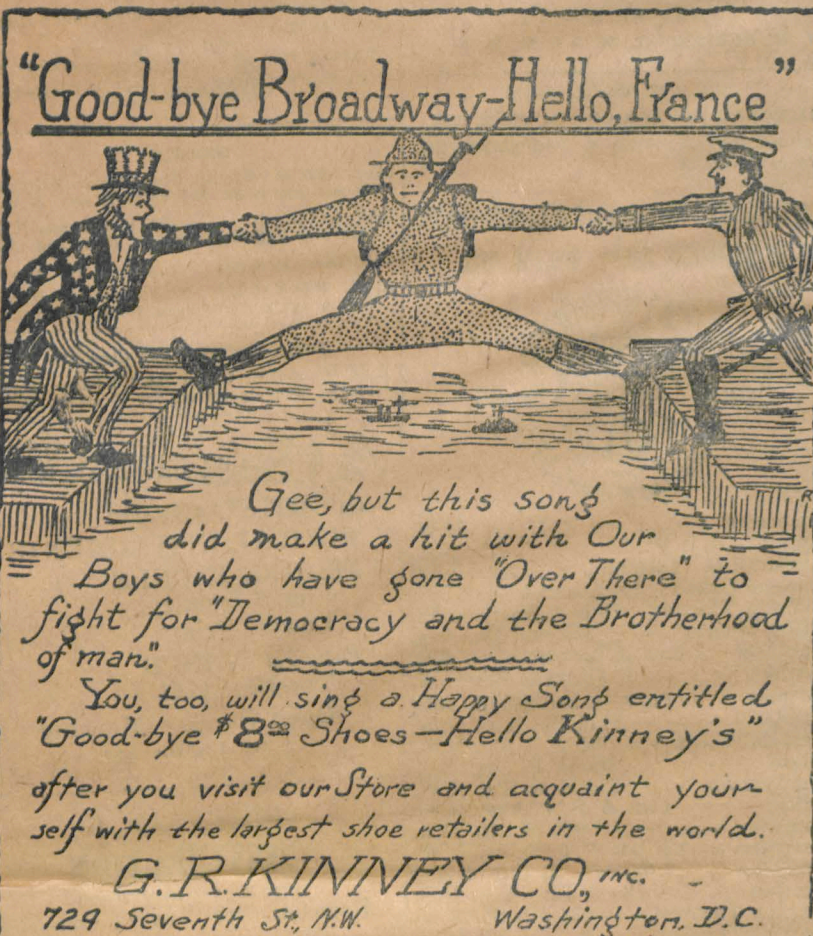 "Good-bye Broadway-Hello, France"
Gee, but this song
did make a hit with Our
Boys who have gone "Over There" to
fight for "Democracy and the Brotherhood
of man."
You, too, will sing a Happy Song entitled
"Good-bye $8⁰⁰ Shoes—Hello Kinney's"
after you visit our Store and acquaint your-
self with the largest shoe retailers in the world.
G. R. KINNEY CO., INC.
729 Seventh St., N.W. Washington, D.C.